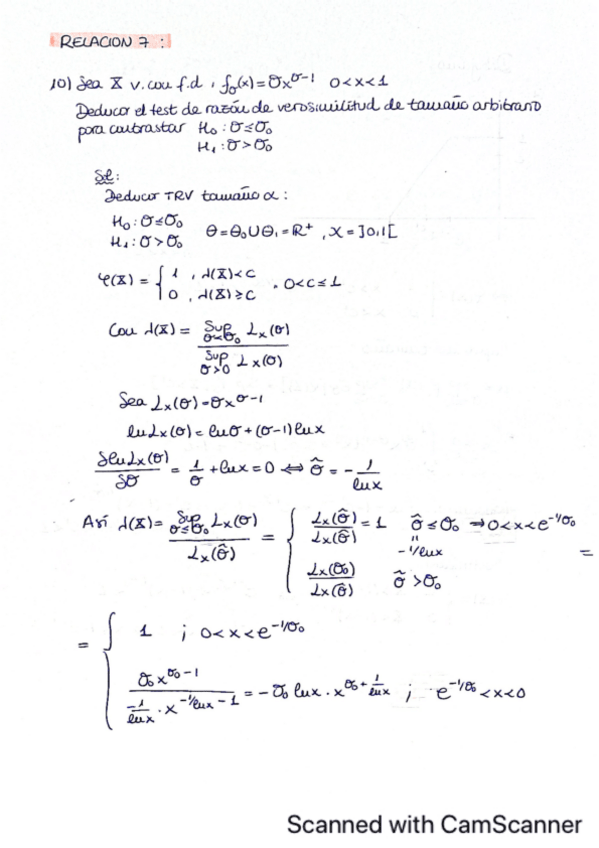 RELACION 7 :
10) Sea X v. con f.d , fσ(x)=σx^(σ-1) 0<x<1
Deducir el test de razón de verosimilitud de tamaño arbitrario
para contrastar H₀ : σ≤σ₀
H₁ : σ>σ₀
Sol:
Deducir TRV tamaño α :
H₀ : σ≤σ₀
H₁ : σ>σ₀ Θ=Θ₀∪Θ₁=ℝ⁺ , X=]0,1[
φ(X) = { 1 , λ(X)<c
0 , λ(X)≥c . 0<c≤1
Con λ(X) = Sup σ≤σ₀ Lx(σ) / Sup σ>0 Lx(σ)
Sea Lx(σ)=σx^(σ-1)
ln Lx(σ) = lnσ+(σ-1)lnx
δlnLx(σ)/δσ = 1/σ + lnx = 0 ⟺ σ̂ = - 1/lnx
Así λ(X)= Sup σ≤σ₀ Lx(σ) / Lx(σ̂) = { Lx(σ̂)/Lx(σ̂) = 1 σ̂≤σ₀ ⇒ 0<x<e^(-1/σ₀)
" -1/lnx =
Lx(σ₀)/Lx(σ̂) σ̂>σ₀
= { 1 ; 0<x<e^(-1/σ₀)
σ₀x^(σ₀-1) / (-1/lnx · x^(-1/lnx - 1)) = -σ₀ lnx · x^(σ₀+1/lnx) ; e^(-1/σ₀)<x<0
Scanned with CamScanner